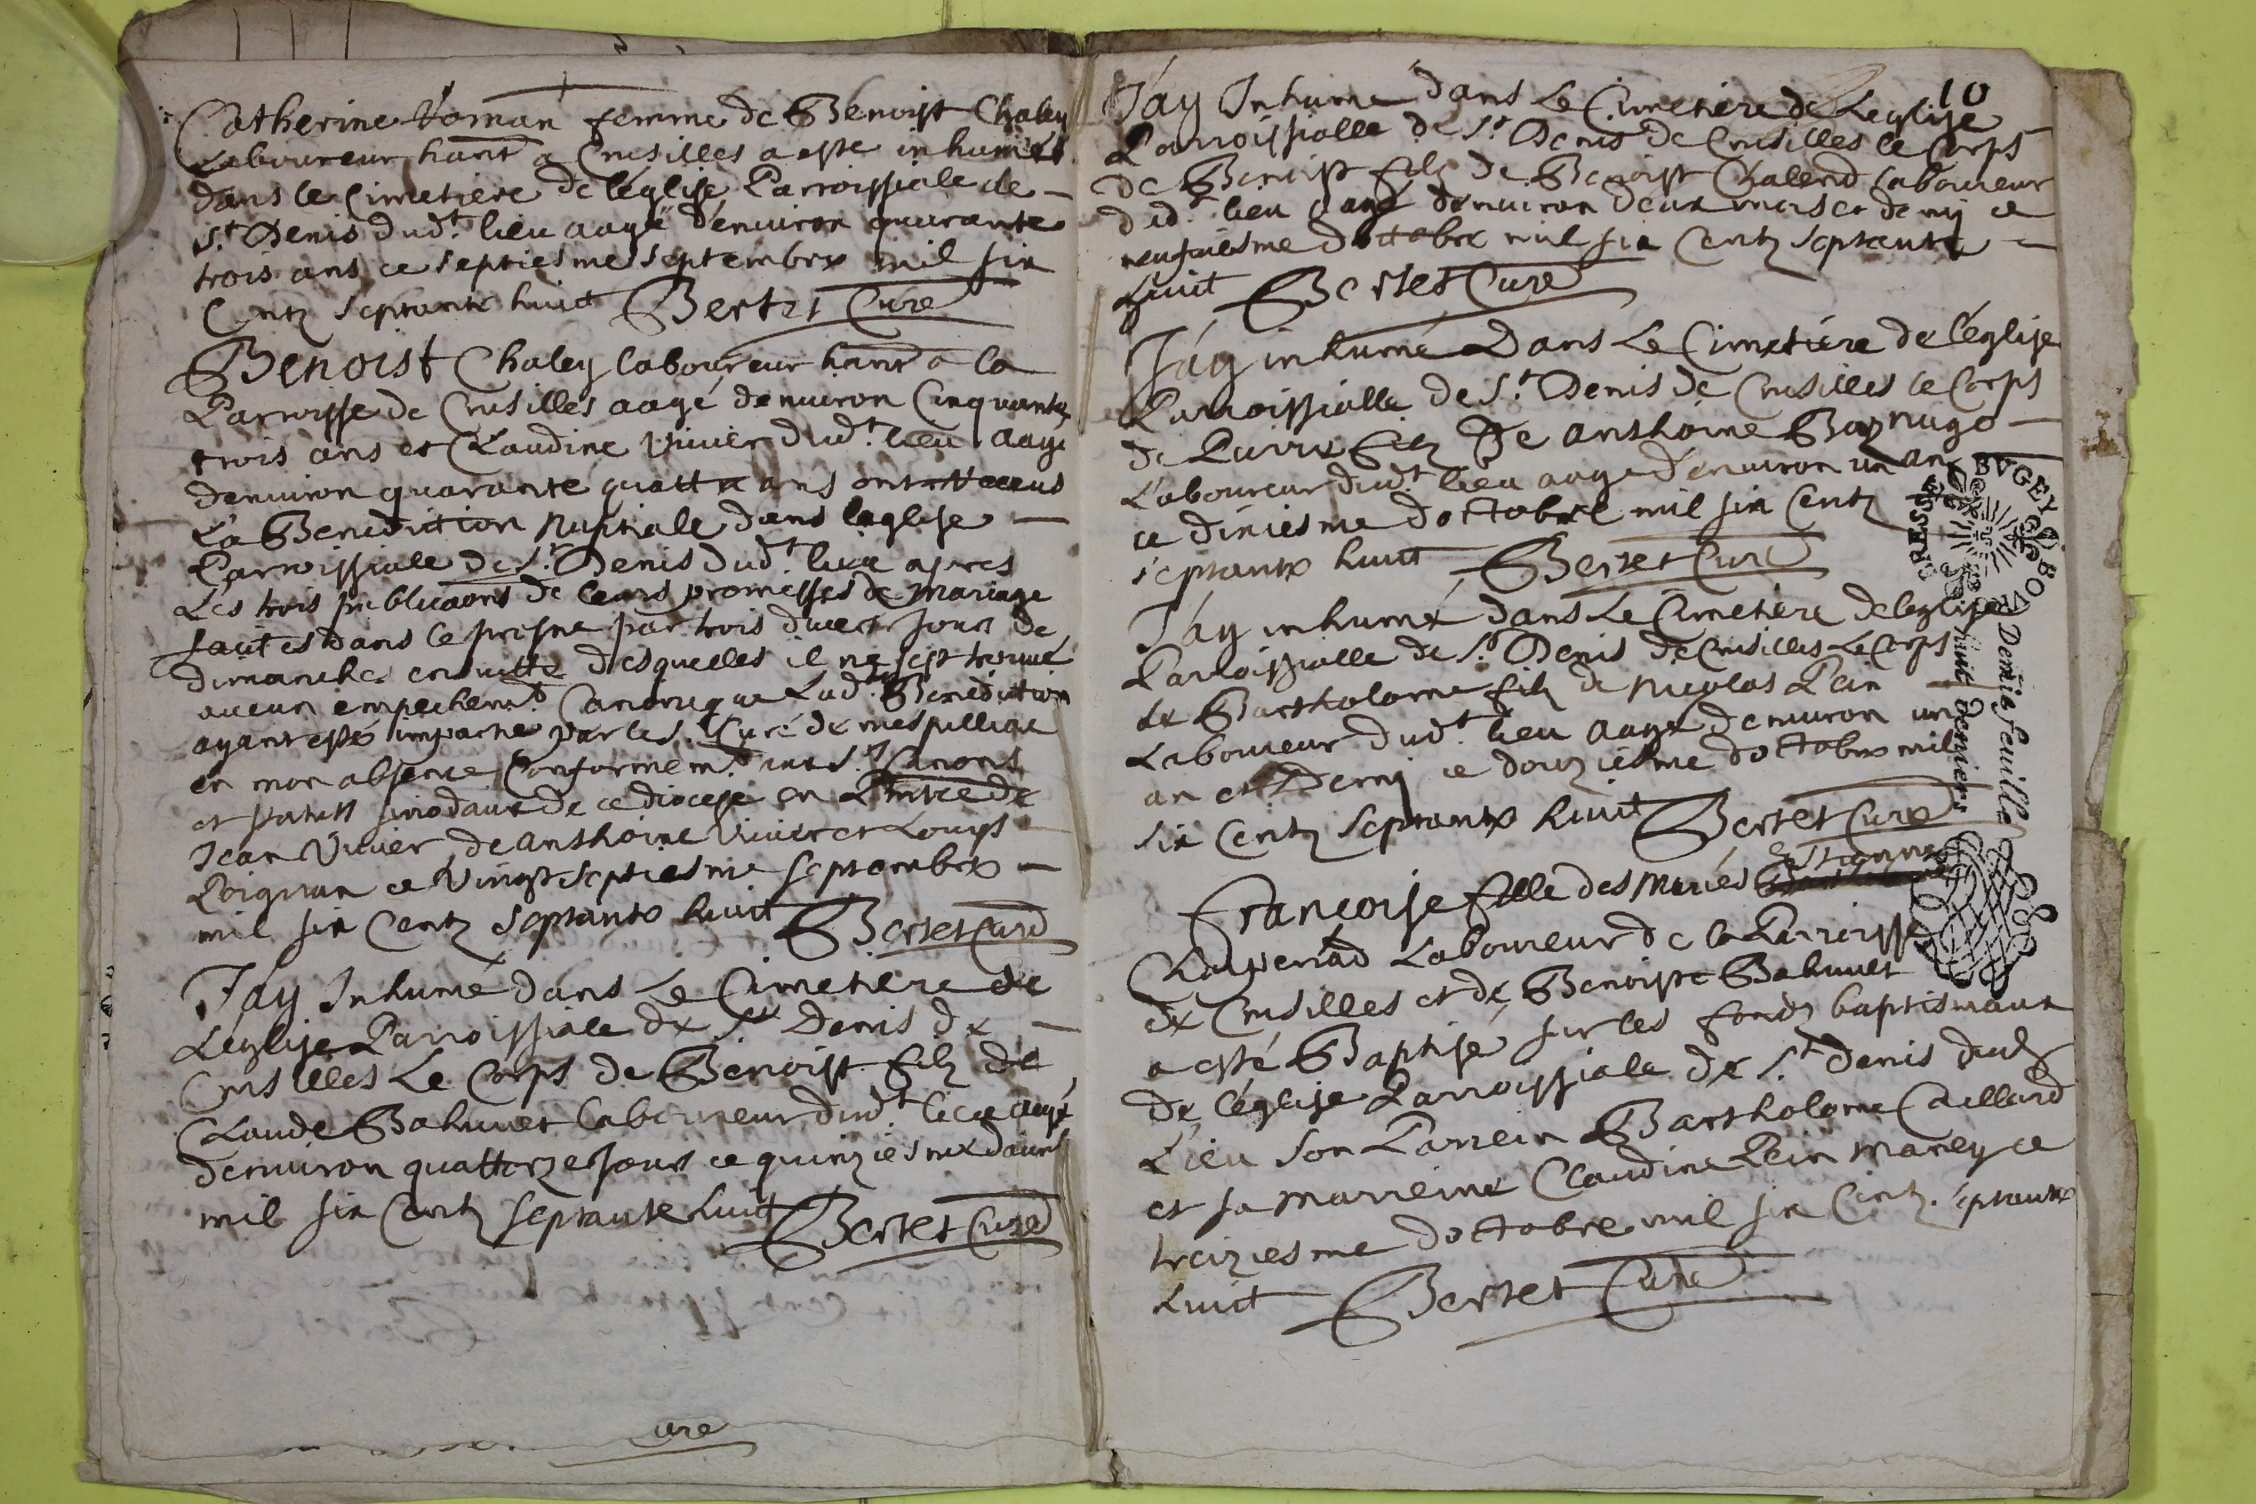 Catherine Roman femme de Benoist Chaley
Laboureur hant a Crusilles a este inhumés
dans le Cimetiere de l'église Parroissiale de
St Denis dudt. lieu aagé d'enuiron quarante
trois ans ce septiesme septembre mil six
Centz septante huict Bertet Curé
Benoist Chaley laboureur hant a la
Parroisse de Crusilles aagé denuiron Cinquante
trois ans et Claudine Viuier dudt. lieu aagé
denuiron quarante quattre ans ont receus
La Benediction nuptiale dans leglise
Parroissiale de St. Denis dudt. lieu apres
Les trois publicaons de leurs promesses de mariage
faittes dans le prosne par trois diuers jours de
dimanche ensuitte desquelles il ne sest trouué
aucun empechemt. Canonique Ladte. Benediction
ayant esté impartie par le s. Curé de mespilliat
en mon absence Conformemt. aux sts Canons
et statuts sinodaux de ce diocese en Pntce de
Jean Viuier de Anthoine Viuier et Louys
Poignan ce Vingt septiesme septembre
mil six Centz septante huict Bertet Curé
J'ay Inhumé dans Le Cimetiere de
L'eglise Parroissiale de St Denis de
Crusilles Le Corps de Benoist filz de
Claude Bahuuet laboureur dudt. lieu aagé
denuiron quattorze jours ce quinziesme
mil six Centz septante huict Bertet Curé
ure
10
J'ay Inhumé dans Le Cimetiere de Leglise
Parroissialle de St. Denis de Crusilles le Corps
de Benoist filz de Benoist Chalend laboureur
dudt. lieu aagé denuiron deux mois et demy ce
neufuiesme d'octobre mil six Centz septante
huict Bertet Curé
J'ay inhumé Dans Le Cimetiére de l'église
Parroissialle de St. Denis de Crusilles le Corps
de Pierre filz De Anthoine
Laboureur dudt. lieu aagé d'enuiron un an
ce dixiesme d'octobre mil six Centz
septante huict Bertet Curé
J'ay inhumé dans Le Cimetiere de leglise
Parroissialle de St. Denis de Crusilles Le Corps
de Bartholome filz de nicolas Pein
Laboureur dudt. lieu aagé denuiron un
an et Demy ce douziesme d'octobre mil
six Centz septante huict Bertet Curé
Estienne
Francoise fille des mariés
Laboureur de la Parroisse
de Crusilles et de Benoiste Bahuuet
a esté Baptisé sur les fondz baptismaux
de l'église Parroissiale de St. denis dudt
Lieu son Parrein Bartholome Caillard
et sa marreine Claudine Pein
treiziesme d'octobre mil six Centz septante
huict Bertet Curé
BRESSE BVGEY
Demie feuille
huit deniers